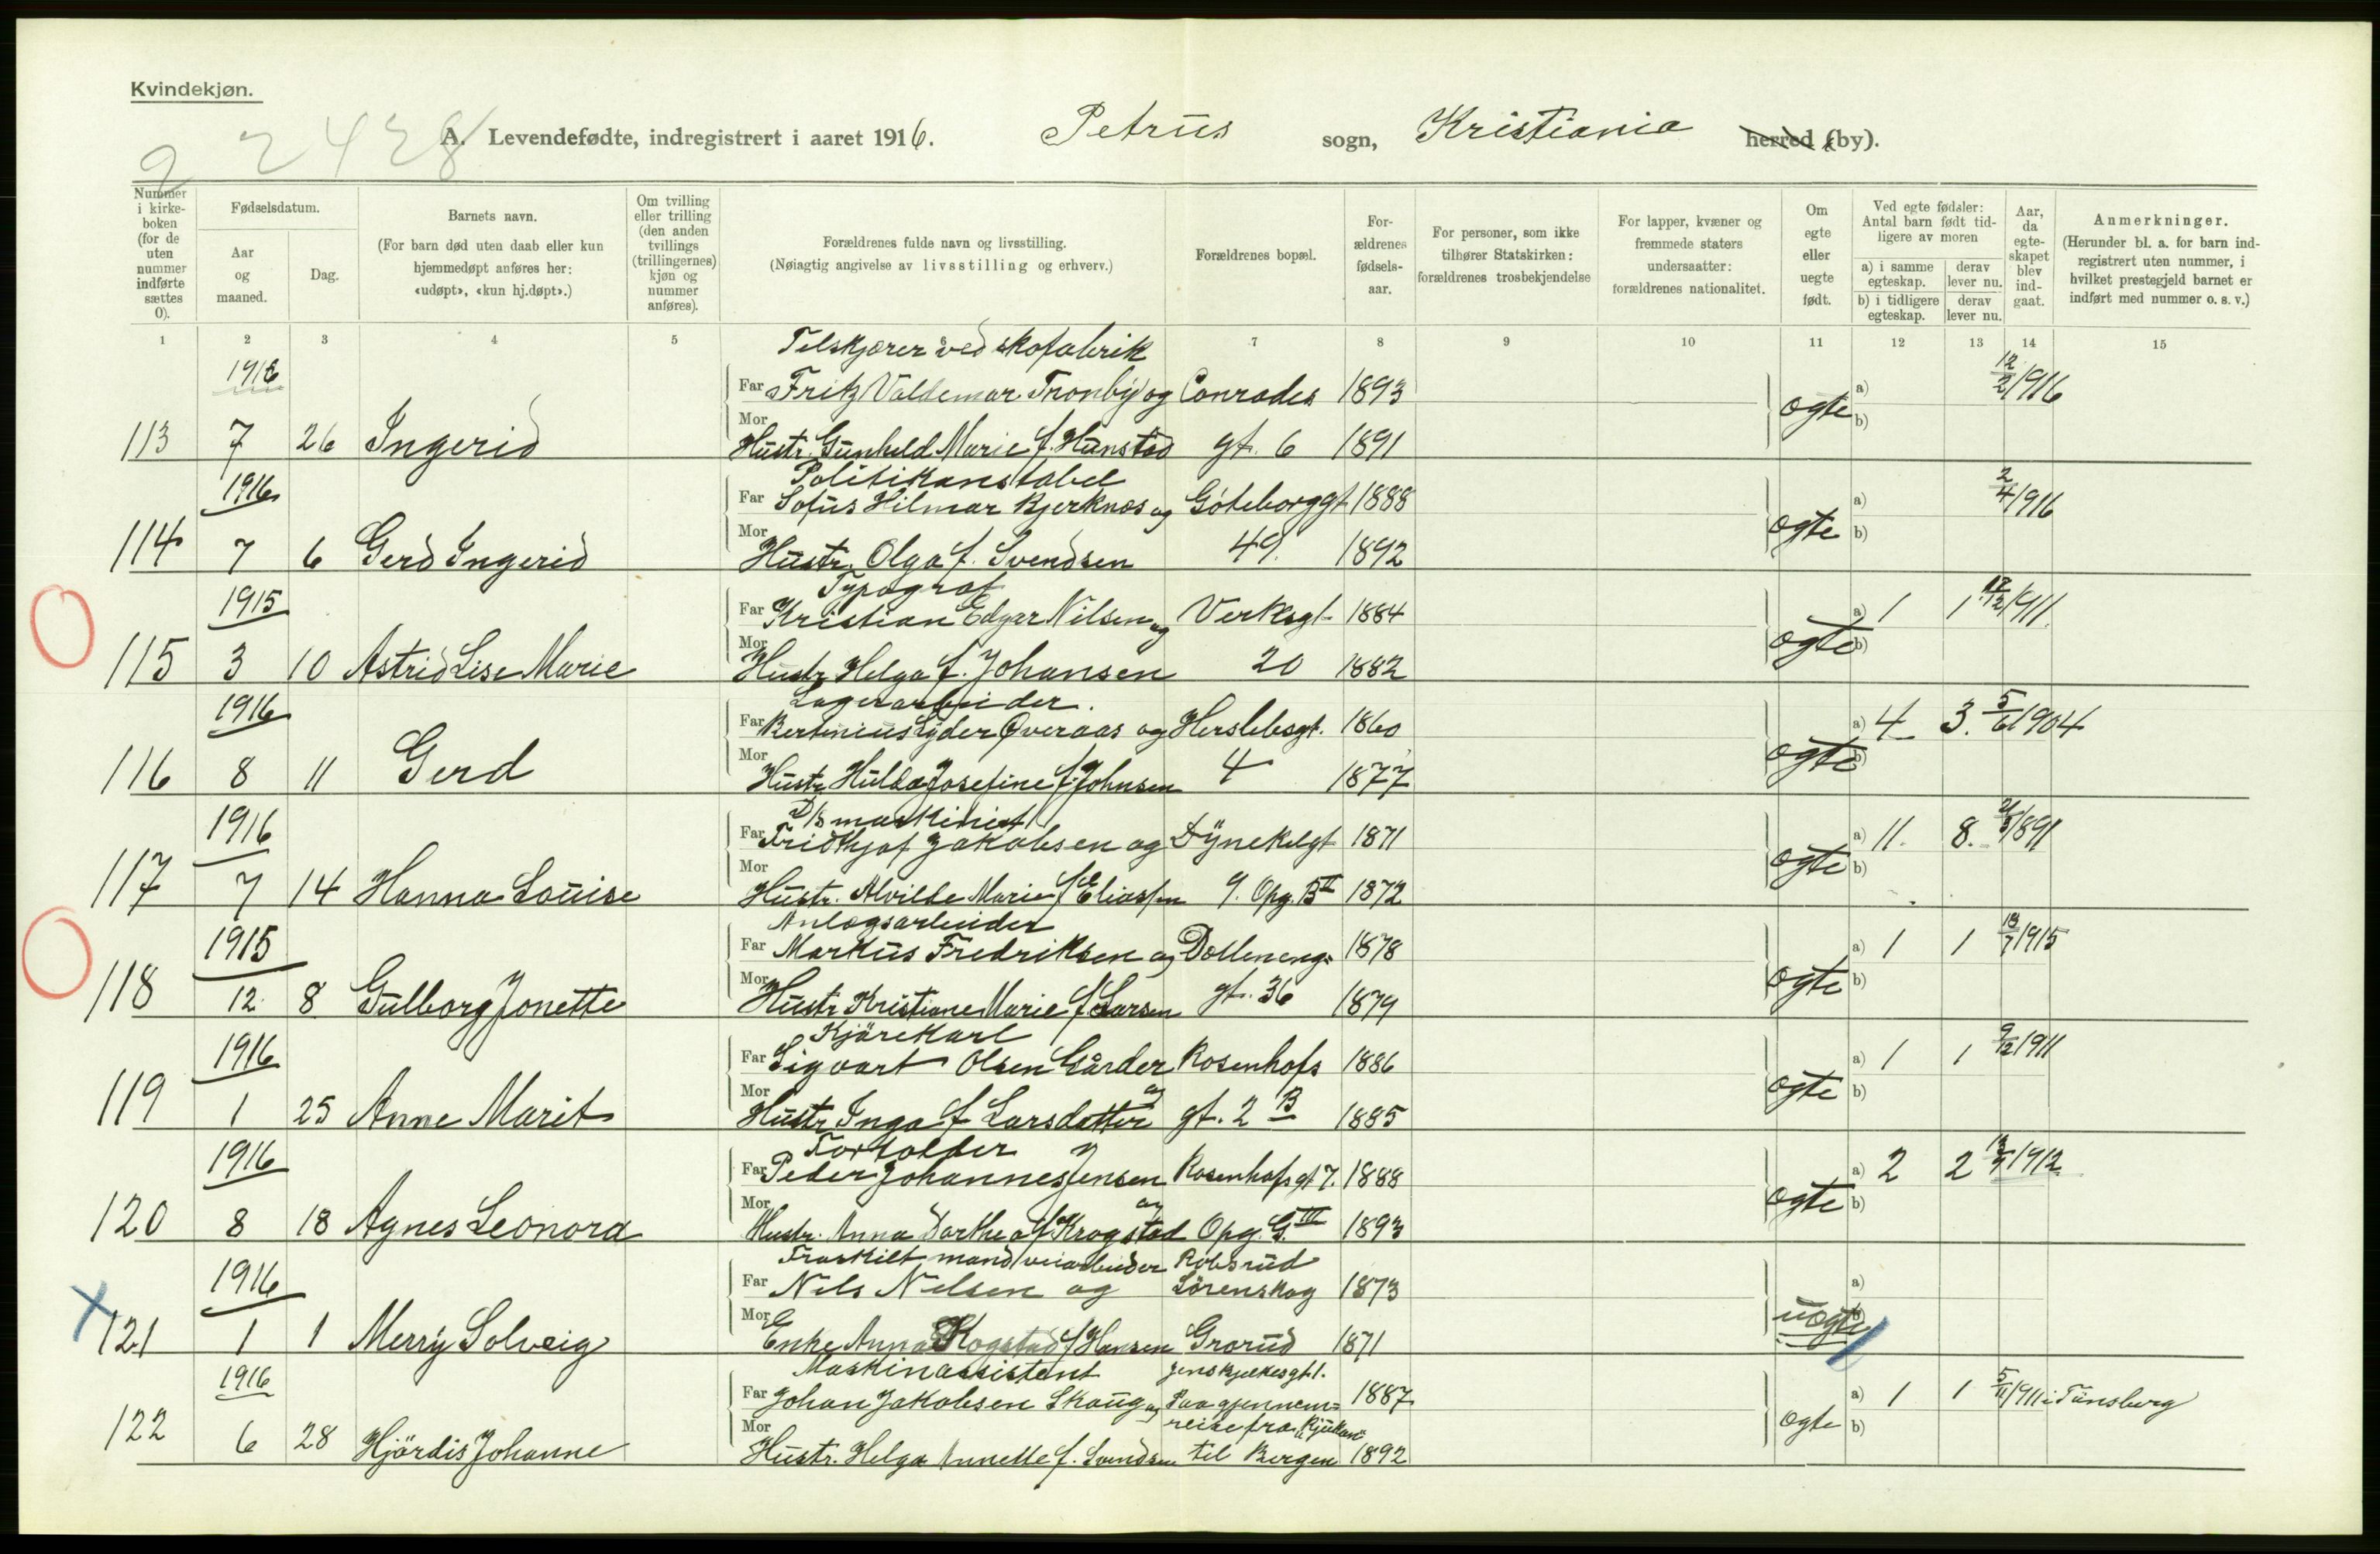 Kvindekjøn.
2 2428
A. Levendefødte, indregistrert i aaret 1916. Petrus sogn, Kristiania herred (by).
Nummer i kirkeboken (for de uten nummer indførte sættes 0).
Fødselsdatum.
Aar og maaned.
Dag.
Barnets navn.
(For barn død uten daab eller kun hjemmedøpt anføres her: «udøpt», «kun hj.døpt».)
Om tvilling eller trilling (den anden tvillings (trillingernes) kjøn og nummer anføres).
Forældrenes fulde navn og livsstilling.
(Nøiagtig angivelse av livsstilling og erhverv.)
Forældrenes bopæl.
Forældrenes fødselsaar.
For personer, som ikke tilhører Statskirken: forældrenes trosbekjendelse
For lapper, kvæner og fremmede staters undersaatter: forældrenes nationalitet.
Om egte eller uegte født.
Ved egte fødsler: Antal barn født tidligere av moren
a) i samme egteskap. derav lever nu.
b) i tidligere egteskap. derav lever nu.
Aar, da egteskapet blev indgaat.
Anmerkninger.
(Herunder bl. a. for barn indregistrert uten nummer, i hvilket prestegjeld barnet er indført med nummer o. s. v.)
1 2 3 4 5 7 8 9 10 11 12 13 14 15
Tilskjærer ved skofabrik
1916 Far Fritz Valdemar Tronby og Conrades 1893 a) 12/2 1916
113 7 26 Ingerid Mor Hustr. Gunhild Marie f. Hanstad gt. 6 1891 ægte b)
Politikonstabel
1916 Far Sofus Hilmar Bjerknæs og Göteborggt 1888 a) 2/4 1916
114 7 6 Gerd Ingerid Mor Hustr. Olga f. Svendsen 49. 1892 ægte b)
Typograf
1915 Far Kristian Edgar Nilsen og Verksgt. 1884 a) 1 1 /12 1911.
115 3 10 Astrid Lise Marie Mor Hustr Helga f. Johansen 20 1882 ægte b)
Lagerarbeider.
1916 Far Bertinius Lyder Øveraas og Herslebsgt. 1860 a) 4 3. 5/6 1904
116 8 11 Gerd Mor Hustr. Hulda Josefine f. Johnsen 4 1877 ægte b)
D/s maskinist
1916 Far Fridtjof Jakobsen og Dynekilgt 1871 a) 11. 8. 1891
117 7 14 Hanna Louise Mor Hustr. Alvilde Marie f. Eliassen 9. Opg. B II 1872 ægte b)
Anlægsarbeider
1915 Far Markus Fredriksen og Dælleneng= 1878 a) 1 1 18/7 1915
118 12 8 Gulborg Jonette Mor Hustr Kristiane Marie f. Larsen gt. 36 1879 ægte b)
Kjörekarl
1916 Far Sigvart Olsen Gårder Rosenhofs 1886 a) 1 1 9/12 1911
119 1 25 Anne Marit Mor og Hustr Inga f Larsdatter gt. 2 B 1885 ægte b)
Forholder
1916 Far Peder Johannes Jensen Rosenhofsgt 7. 1888 a) 2 2 1912
120 8 18 Agnes Leonora Mor og Hustr. Anna Dorthea f. Krogstad Opg. G. III 1893 ægte b)
Fraskilt mand veiarbeider Robsrud
1916 Far Nils Nilsen og Lörenskog 1873 a)
121 1 1 Merry Solveig Mor Enke Anna Kogstad f Hansen Grorud 1871 uægte b)
Maskinassistent Jens Bjelkesgt. 1.
1916 Far Johan Jakobsen Skaug og Paa gjennem= 1887 a) 1 1 5/11 1911 i Tünsberg
reise fra Rjukan
122 6 28 Hjördis Johanne Mor Hustr. Helga Annette f. Svendsen til Bergen 1892 ægte b)